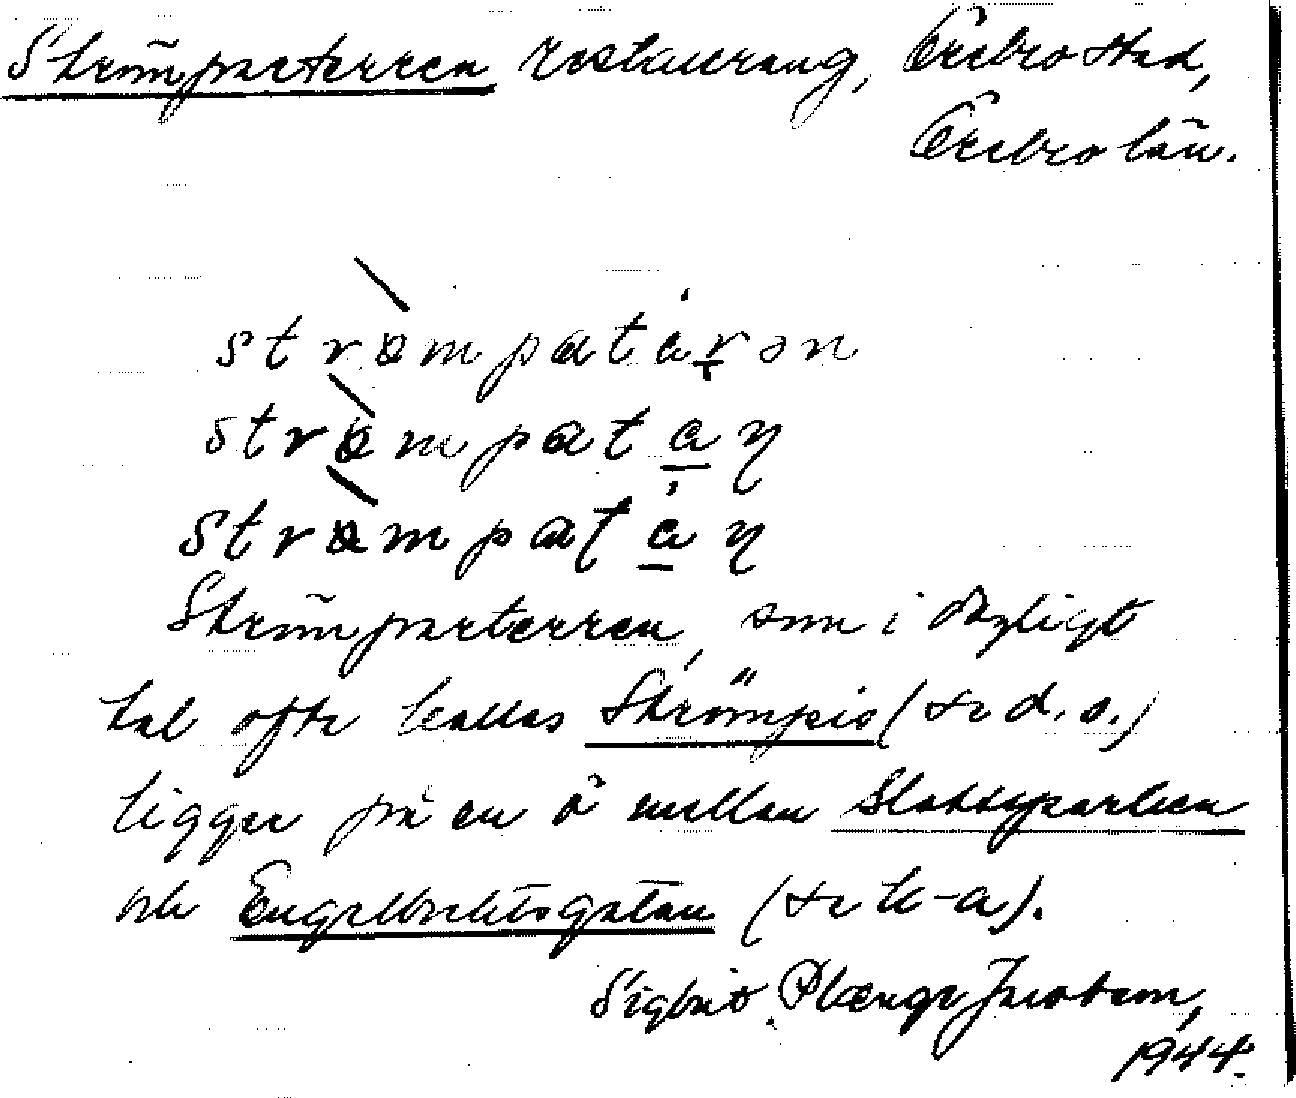 Strömparterren restaurang, Örebro stad,
Örebro län.
strömpatärən
strömpatäŋ
strömpatäŋ
Strömparterren, som i dagligt
tal ofta kallas Strömpis (se d.o.)
ligger på en ö mellan Slottsparken
och Engelbrektsgatan (se k-a).
Sigbrit Plænge Jacobson,
1944.